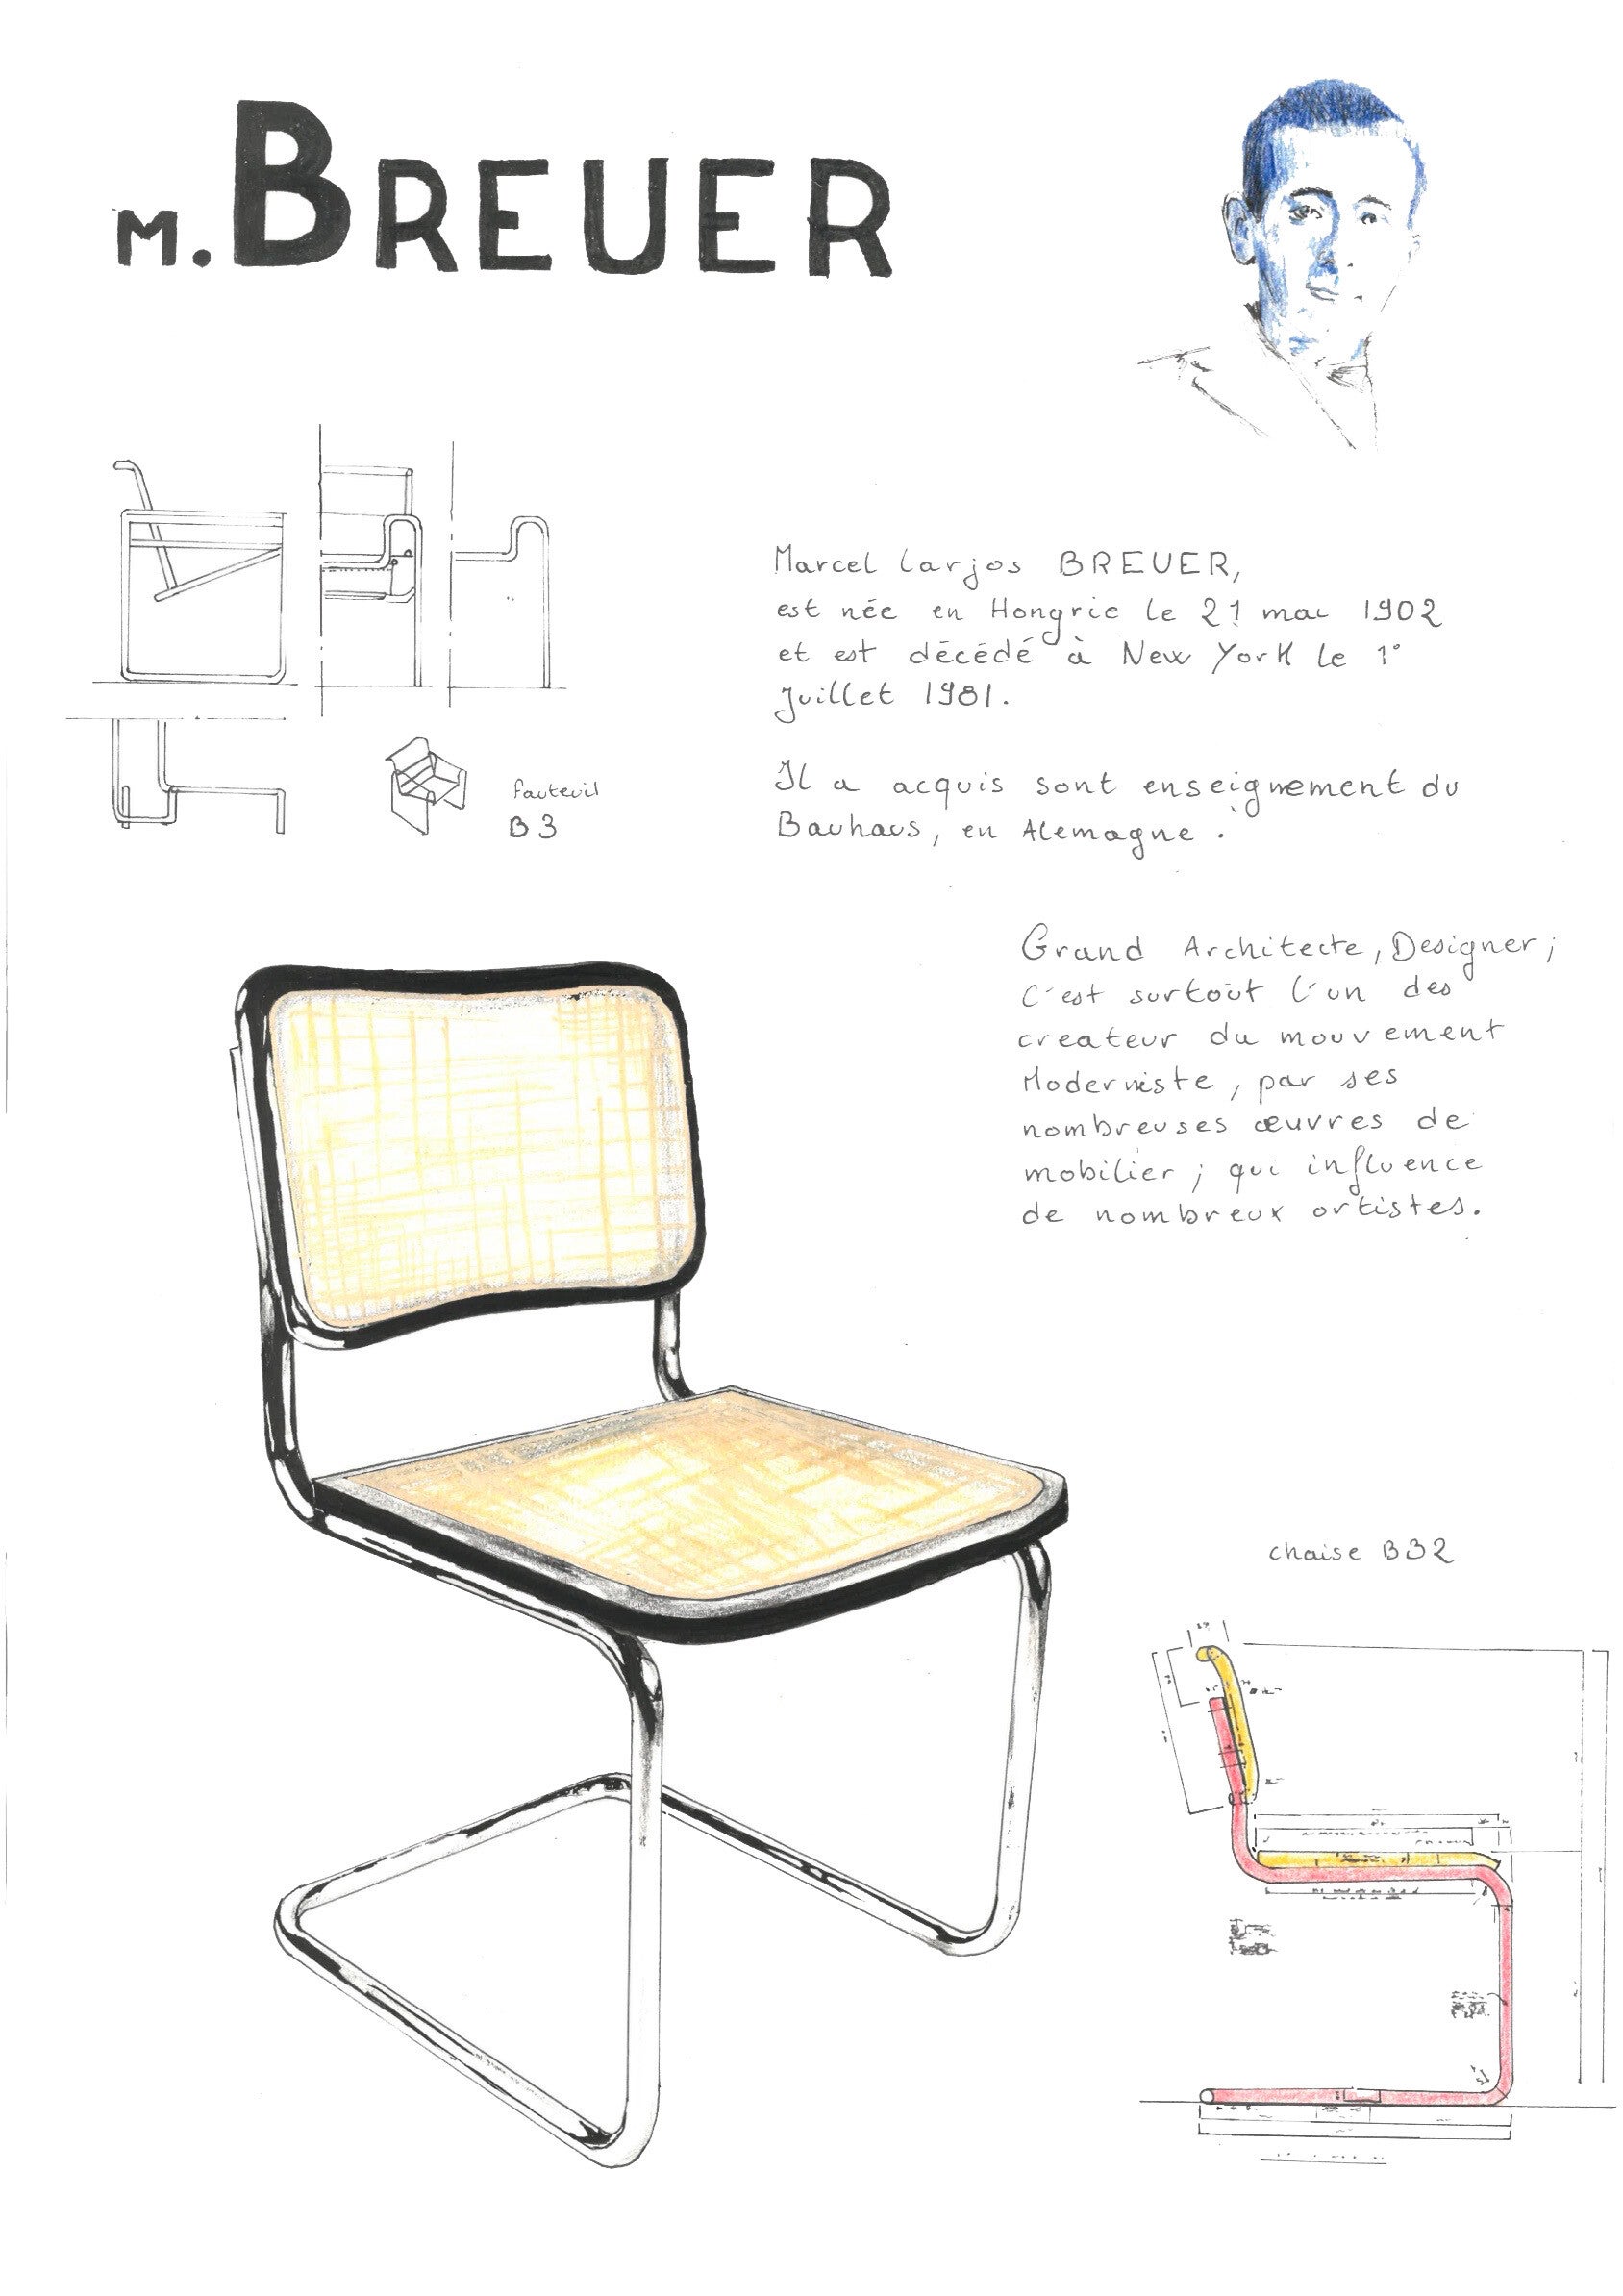 M. BREUER
Marcel Larjos BREUER,
est née en Hongrie le 21 mai 1902
et est décédé à New York le 1°
Juillet 1981.
Il a acquis sont enseignement du
Bauhaus, en Alemagne.
fauteuil
B3
Grand Architecte, Designer;
C'est surtout l'un des
createur du mouvement
Moderniste, par ses
nombreuses œuvres de
mobilier; qui influence
de nombreux artistes.
chaise B32